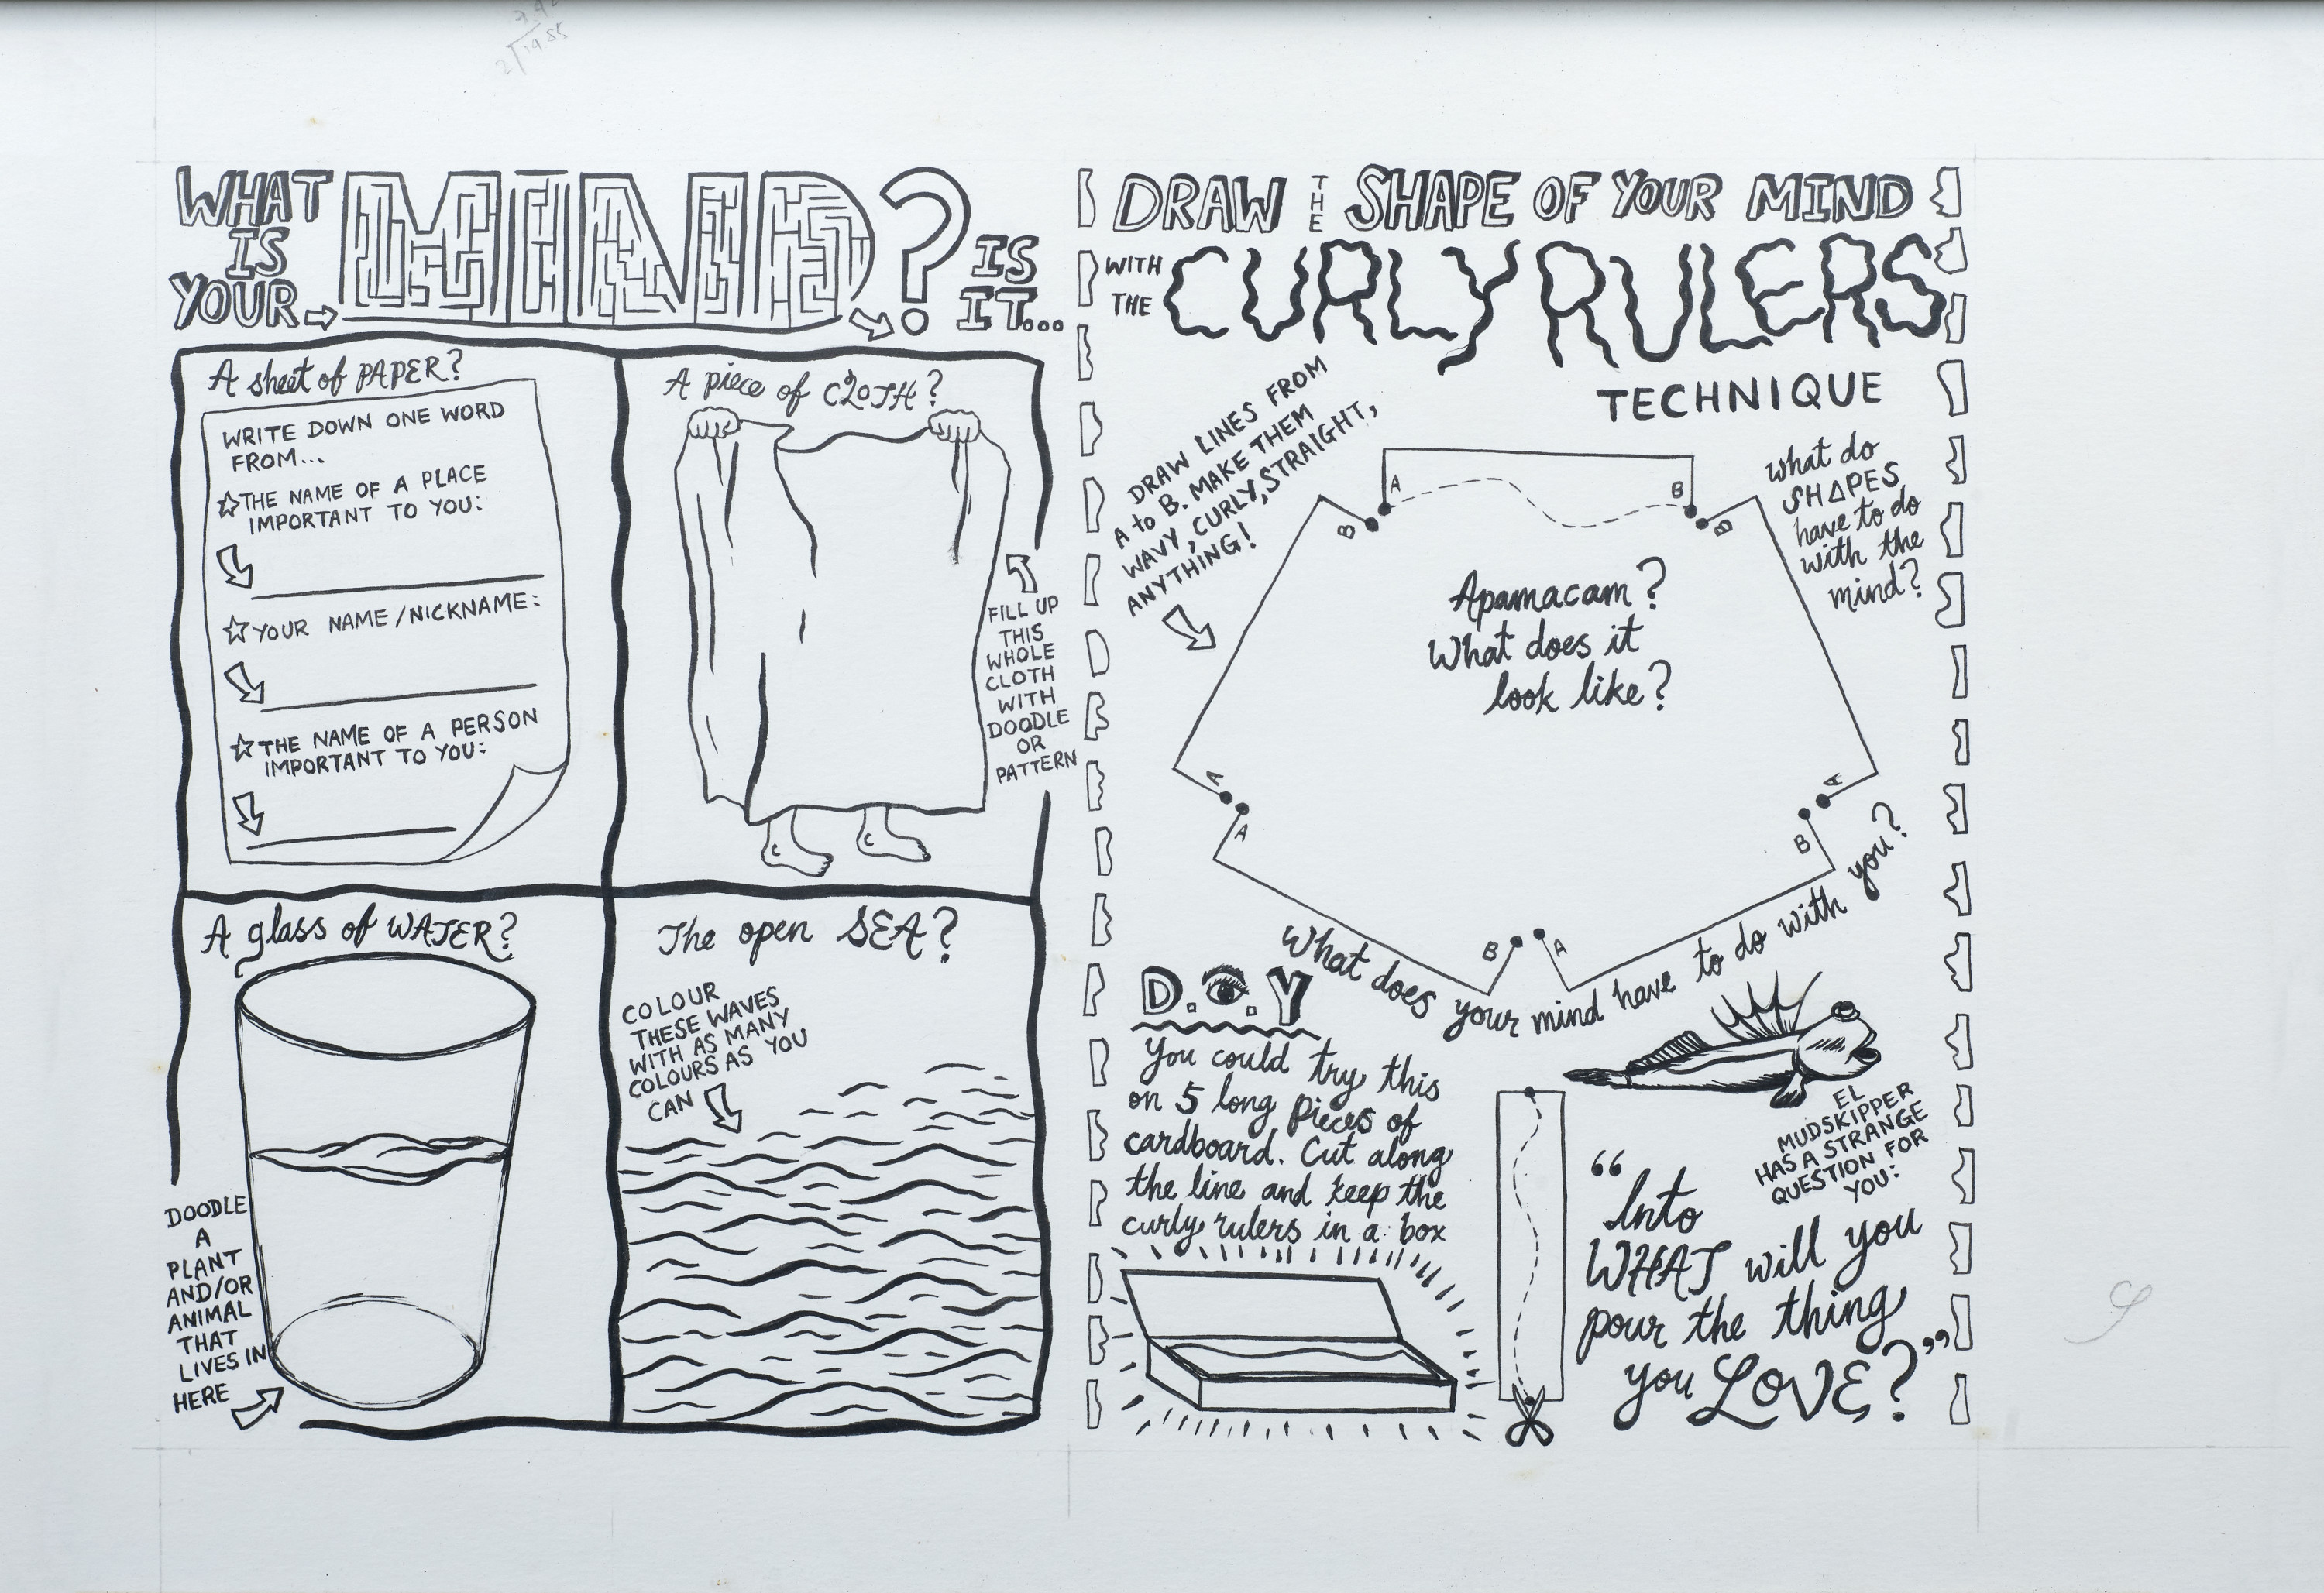 WHAT
IS
YOUR
MIND?
IS
IT...
A sheet of PAPER?
WRITE DOWN ONE WORD
FROM...
THE NAME OF A PLACE
IMPORTANT TO YOU:
YOUR NAME/NICKNAME:
THE NAME OF A PERSON
IMPORTANT TO YOU:
A piece of CLOTH?
FILL UP
THIS
WHOLE
CLOTH
WITH
DOODLE
OR
PATTERN
A glass of WATER?
DOODLE
A
PLANT
AND/OR
ANIMAL
THAT
LIVES IN
HERE
The open SEA?
COLOUR
THESE WAVES
WITH AS MANY
COLOURS AS YOU
CAN
DRAW THE SHAPE OF YOUR MIND
WITH
THE
CURLY RULERS
TECHNIQUE
DRAW LINES FROM
A to B. MAKE THEM
WAVY, CURLY, STRAIGHT,
ANYTHING!
A
B
B
B
What do
SHAPES
have to do
with the
mind?
Apamacam?
What does it
look like?
A
A
A
B
B
A
What does your mind have to do with you?
D.I.Y
You could try this
on 5 long pieces of
cardboard. Cut along
the line and keep the
curly rulers in a box
EL
MUDSKIPPER
HAS A STRANGE
QUESTION FOR
YOU:
“Into
WHAT will you
pour the thing
you LOVE?”